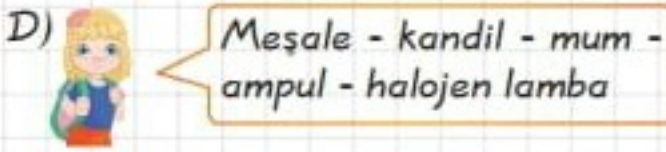 D)
Meşale - kandil - mum -
ampul - halojen lamba